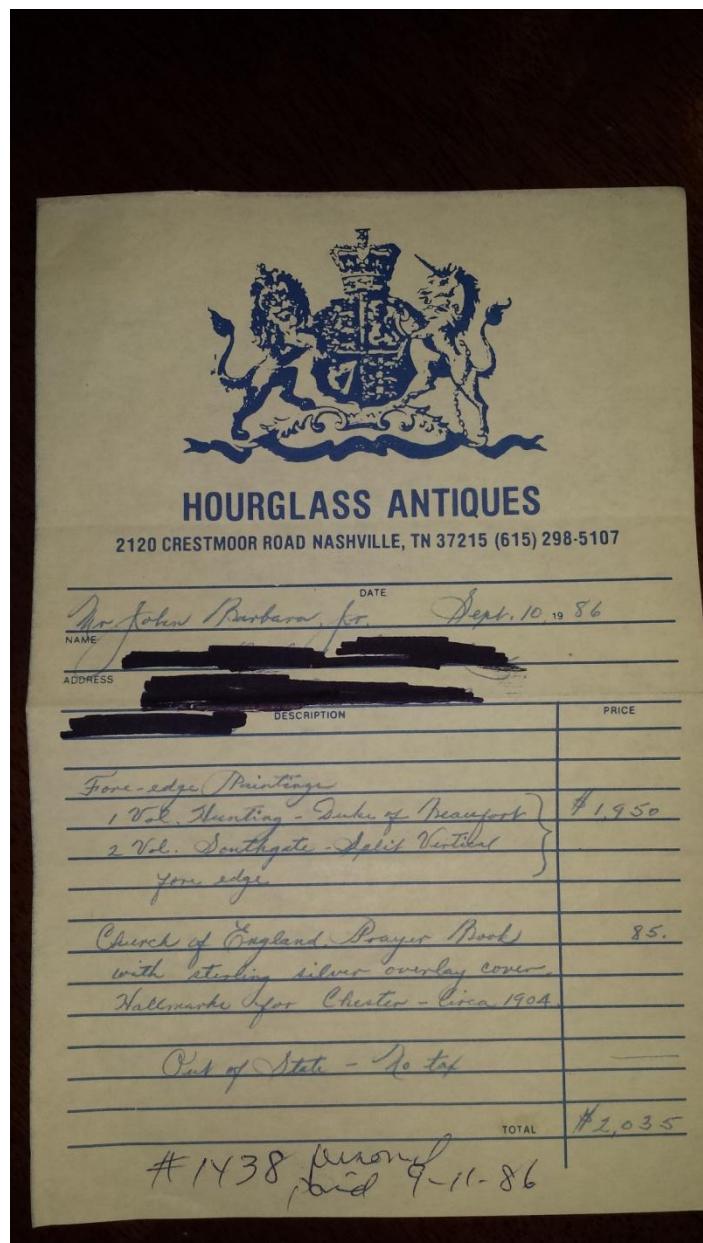 HOURGLASS ANTIQUES
2120 CRESTMOOR ROAD NASHVILLE, TN 37215 (615) 298-5107
DATE
Mr John Barbara, Jr. Sept. 10, 19 86
NAME
ADDRESS
DESCRIPTION PRICE
Fore-edge Paintings
1 Vol. Hunting - Duke of Beaufort $1,950
2 Vol. Southgate - Split Vertical
fore edge
Church of England Prayer Book 85.
with sterling silver overlay cover.
Hallmarks for Chester - Circa 1904.
Out of State - No tax
TOTAL $2,035
#1438 personal
paid 9-11-86